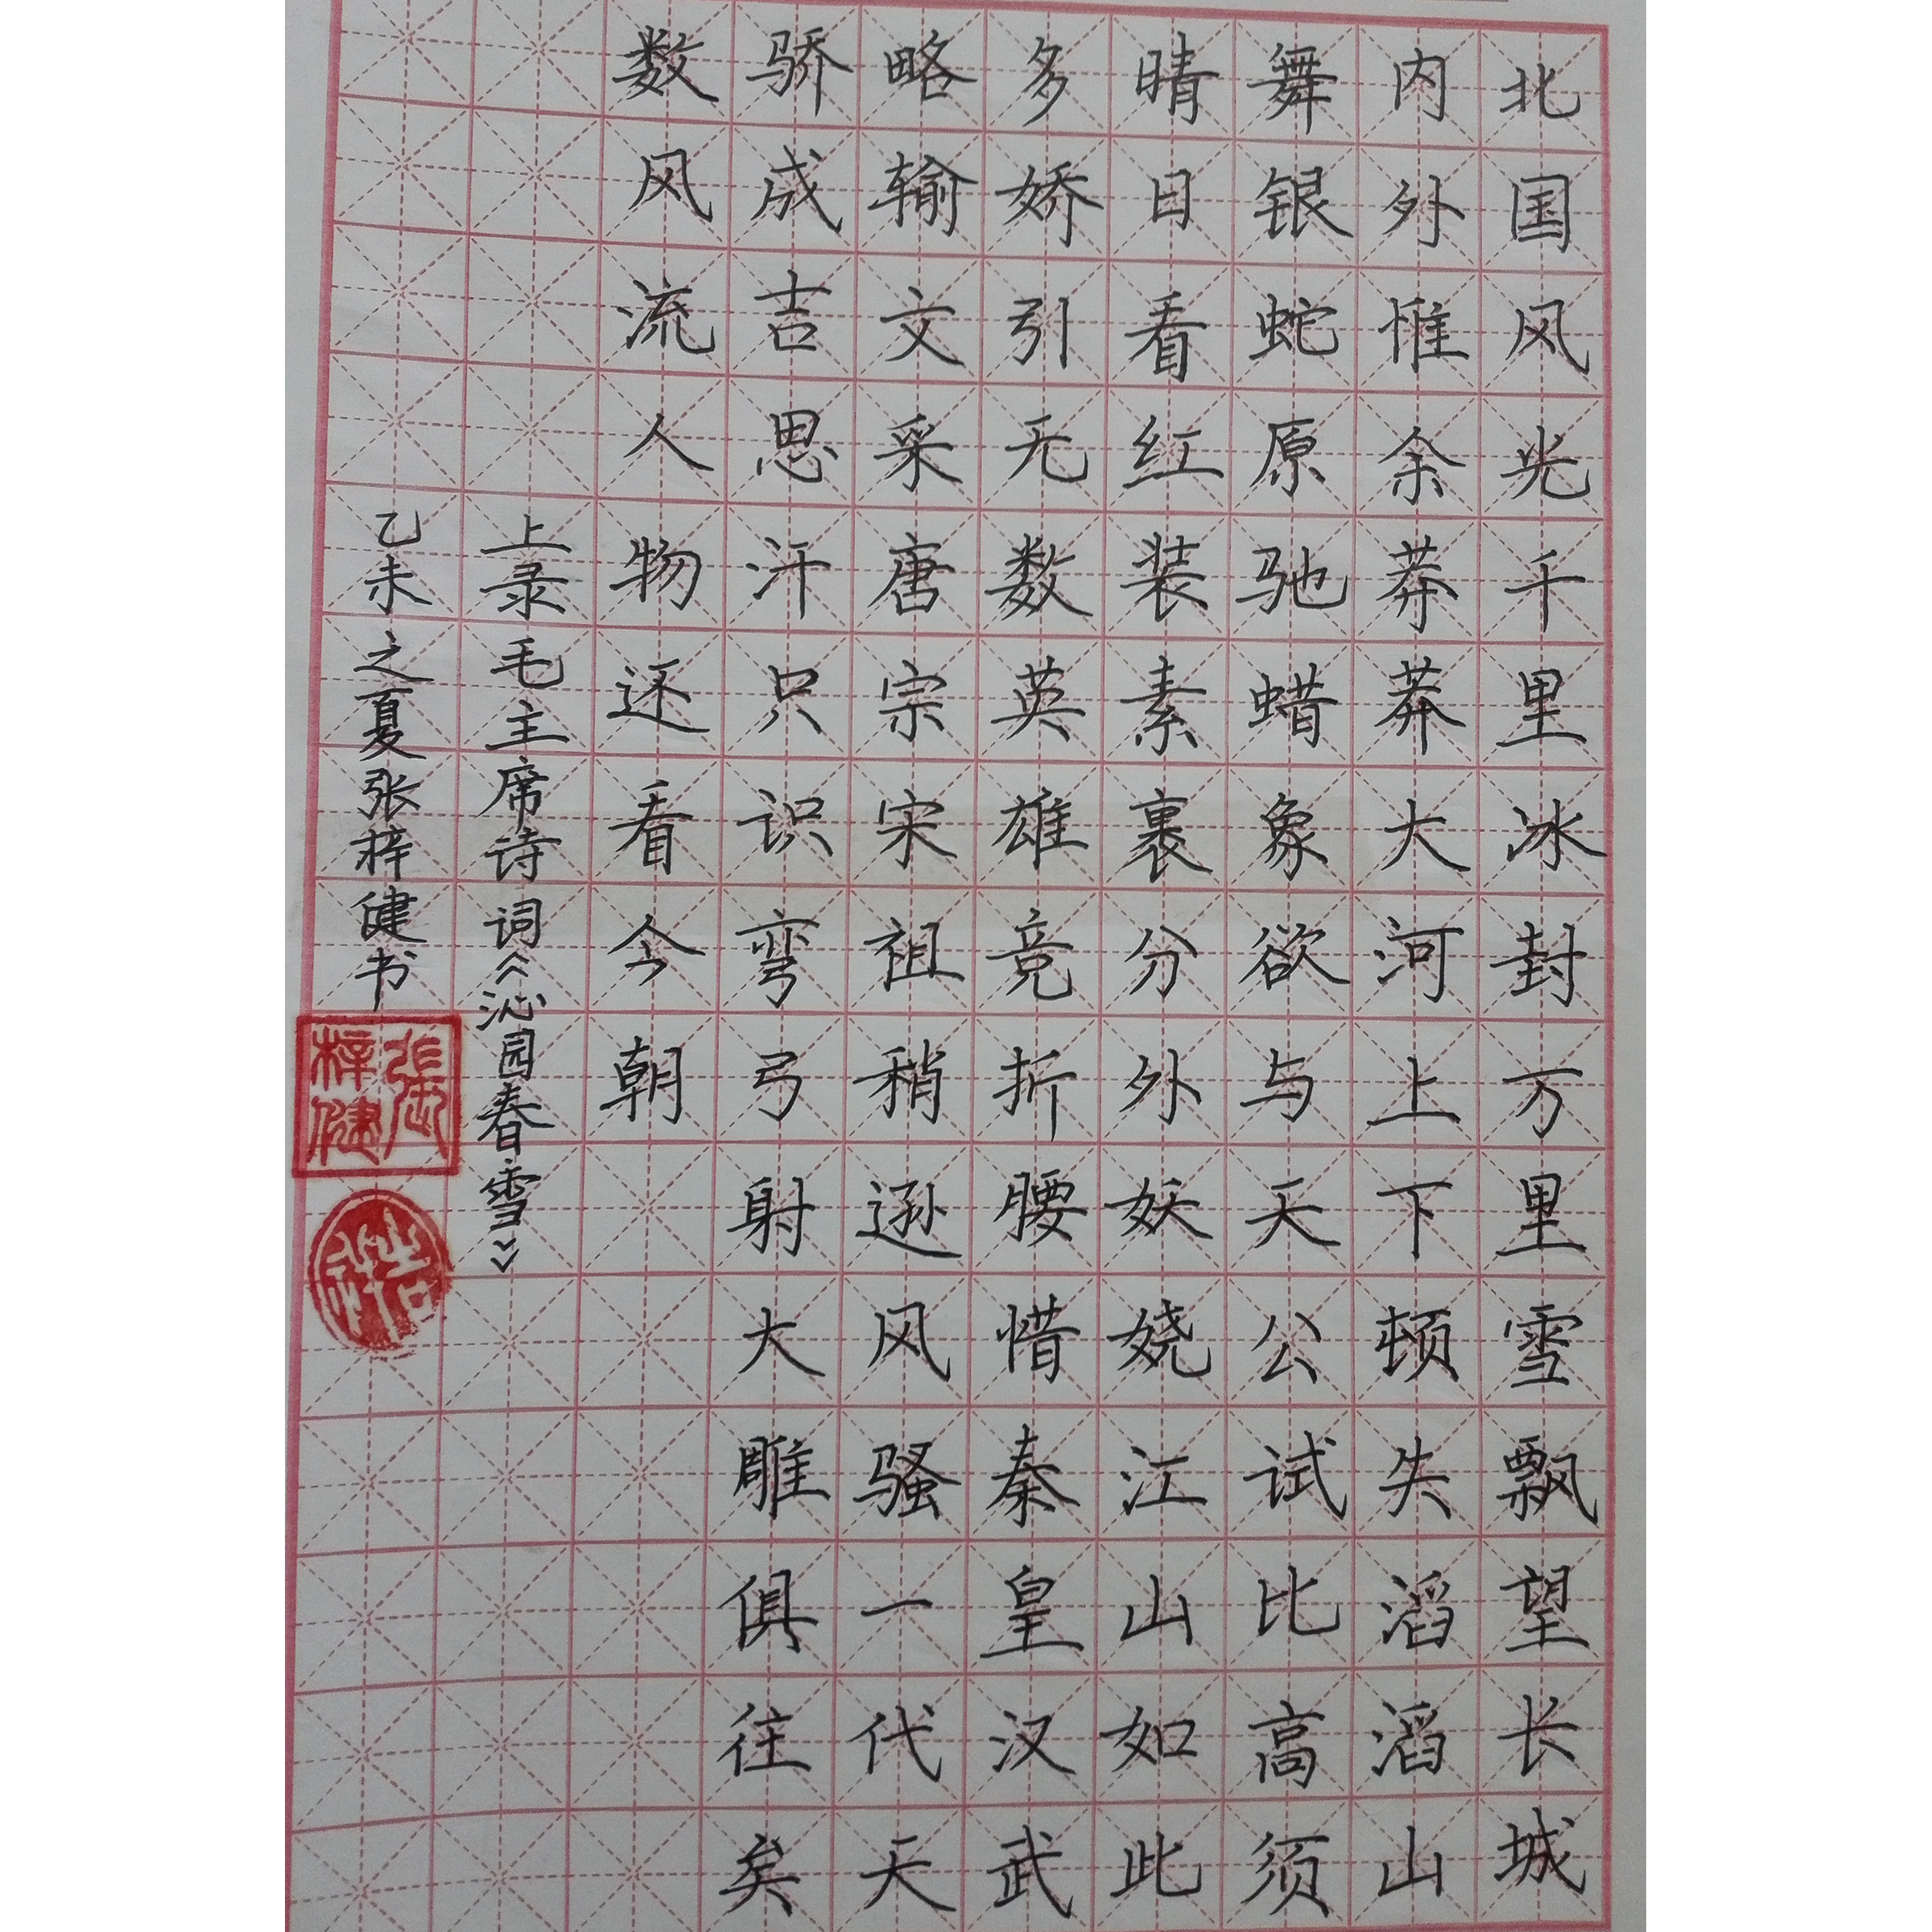 北国风光千里冰封万里雪飘望长城
内外惟余莽莽大河上下顿失滔滔山
舞银蛇原驰蜡象欲与天公试比高须
晴日看红装素裹分外妖娆江山如此
多娇引无数英雄竞折腰惜秦皇汉武
略输文采唐宗宋祖稍逊风骚一代天
骄成吉思汗只识弯弓射大雕俱往矣
数风流人物还看今朝
上录毛主席诗词《沁园春雪》
乙未之夏张梓健书
張梓健